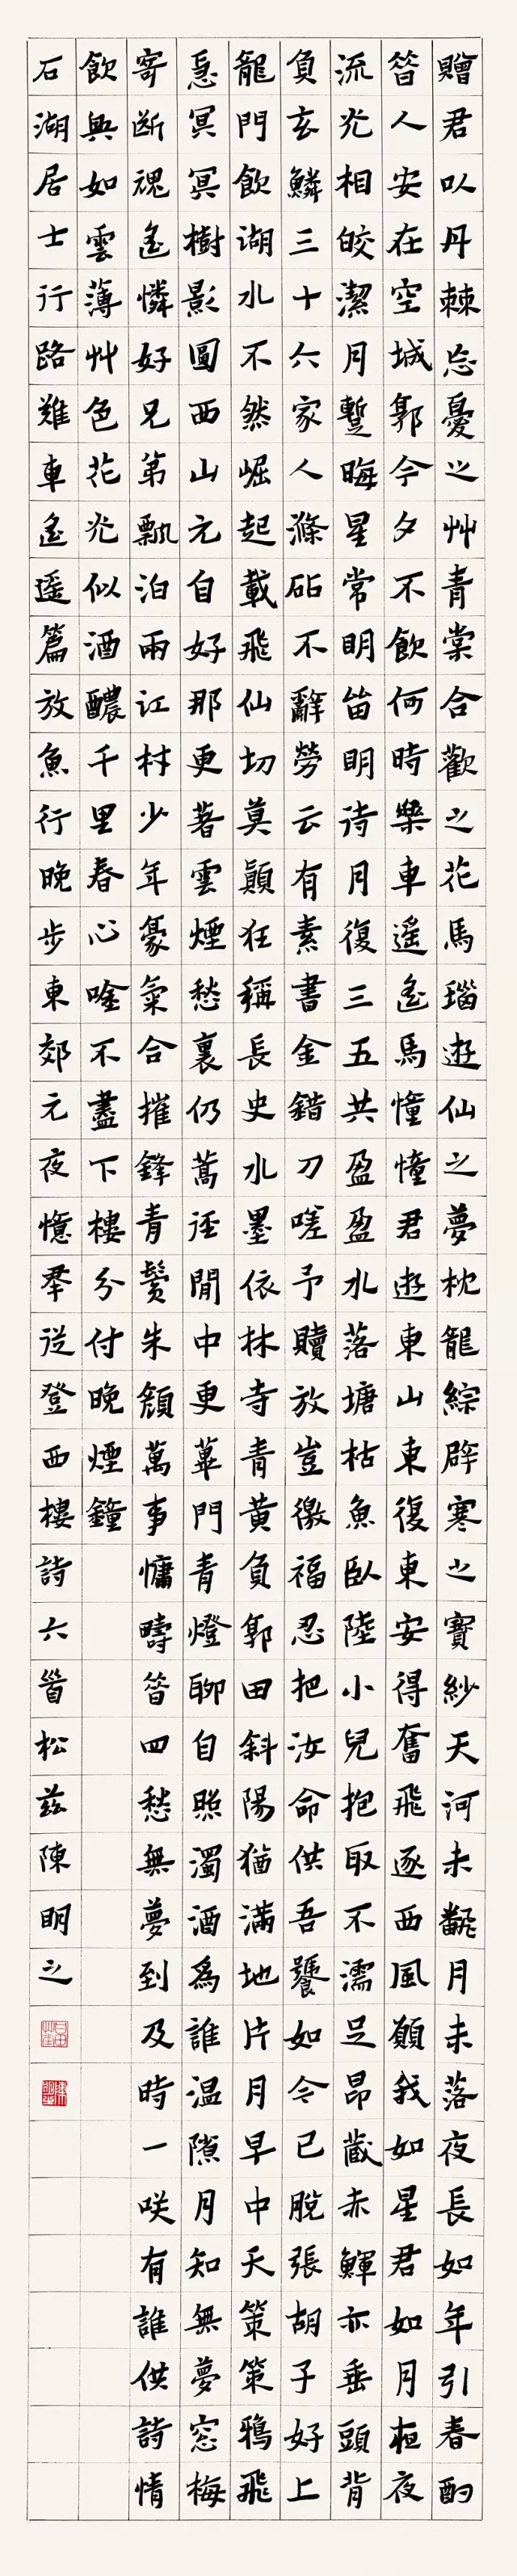 贈君以丹棘忘憂之艸青棠合歡之花馬瑙遊仙之夢枕龍綜辟寒之寶紗天河未翻月未落夜長如年引春酌
昔人安在空城郭今夕不飲何時樂車遥遙馬憧憧君遊東山東復東安得奮飛逐西風願我如星君如月夜
流光相皎潔月蹔晦星常明畱明待月復三五共盈盈水落塘枯魚臥陸小兒抱取不濡足昂藏赤鯶亦垂頭背
負玄鱗三十六家人滌砧不辭勞云有素書金錯刀嗟予贖放豈徼福忍把汝命供吾饕如今已脫張胡子好上
龍門飲湖水不然崛起載飛仙切莫顛狂稱長史水墨依林寺青黃負郭田斜陽猶滿地片月早中天策策鴉飛
急冥冥樹影圓西山元自好那更著雲煙愁裏仍蒿徑閒中更蓽門青燈聊自照濁酒為誰温隙月知無夢窓梅
寄斷魂遙憐好兄弟飄泊兩江村少年豪氣合摧鋒青鬢朱顏萬事慵疇昔四愁無夢到及時一咲有誰供詩情
飲興如雲薄艸色花光似酒醲千里春心唫不盡下樓分付晚煙鐘
石湖居士行路難車遙遥篇放魚行晚步東郊元夜憶羣從登西樓詩六首松茲陳明之